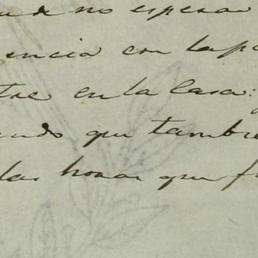 no esperar
encia con la
en la Casa
que tambie
las horas que f